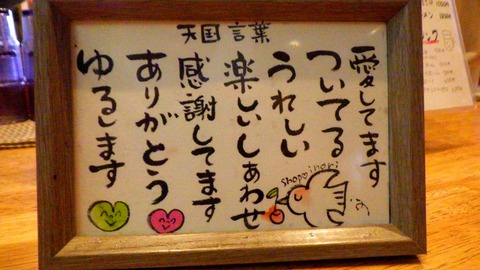 天国言葉
愛してます
ついてる
うれしい
楽しいしあわせ
感謝してます
ありがとう
ゆるします
shopoinori